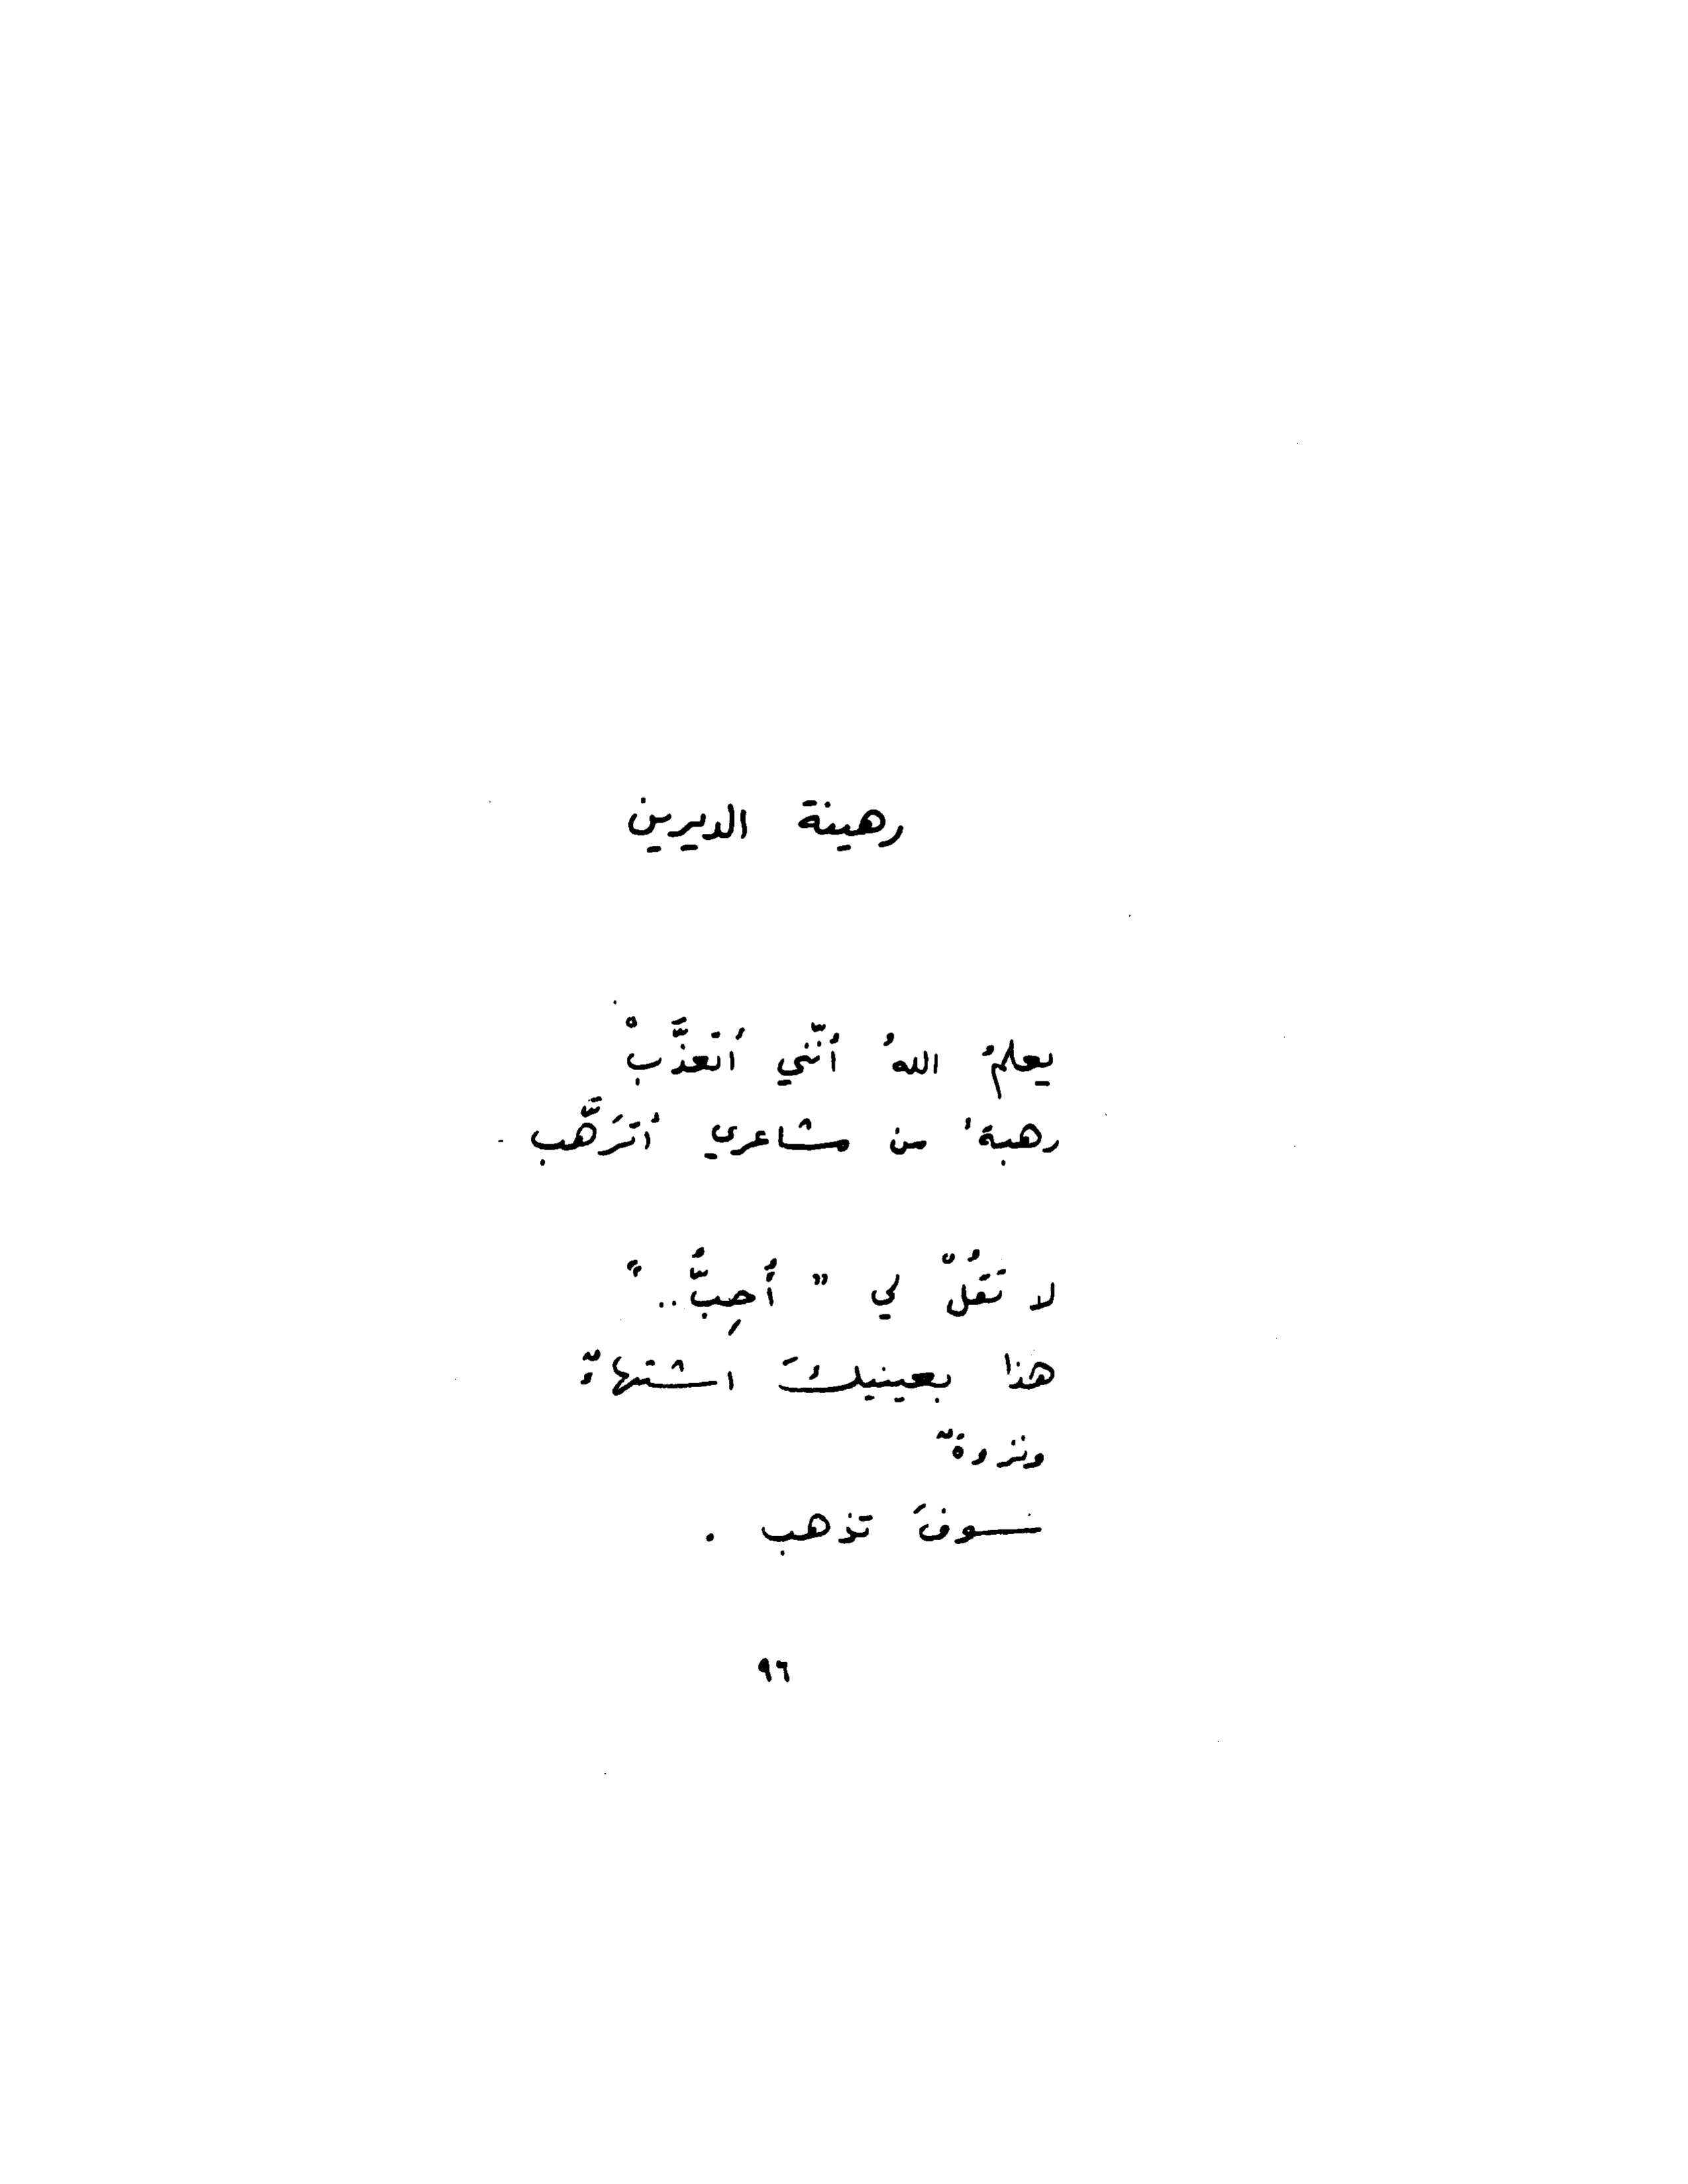 رهينة الديرين
يعلمُ اللهُ أنّني أتعذَّبْ
رهبة' من مشاعري أترَهَّب
لا تَقُلْ لي " أُحِبُّ.. "
هذا بعينيكَ اشتهاءٌ
ونزوةٌ
سوفَ تذهب .
٩٦